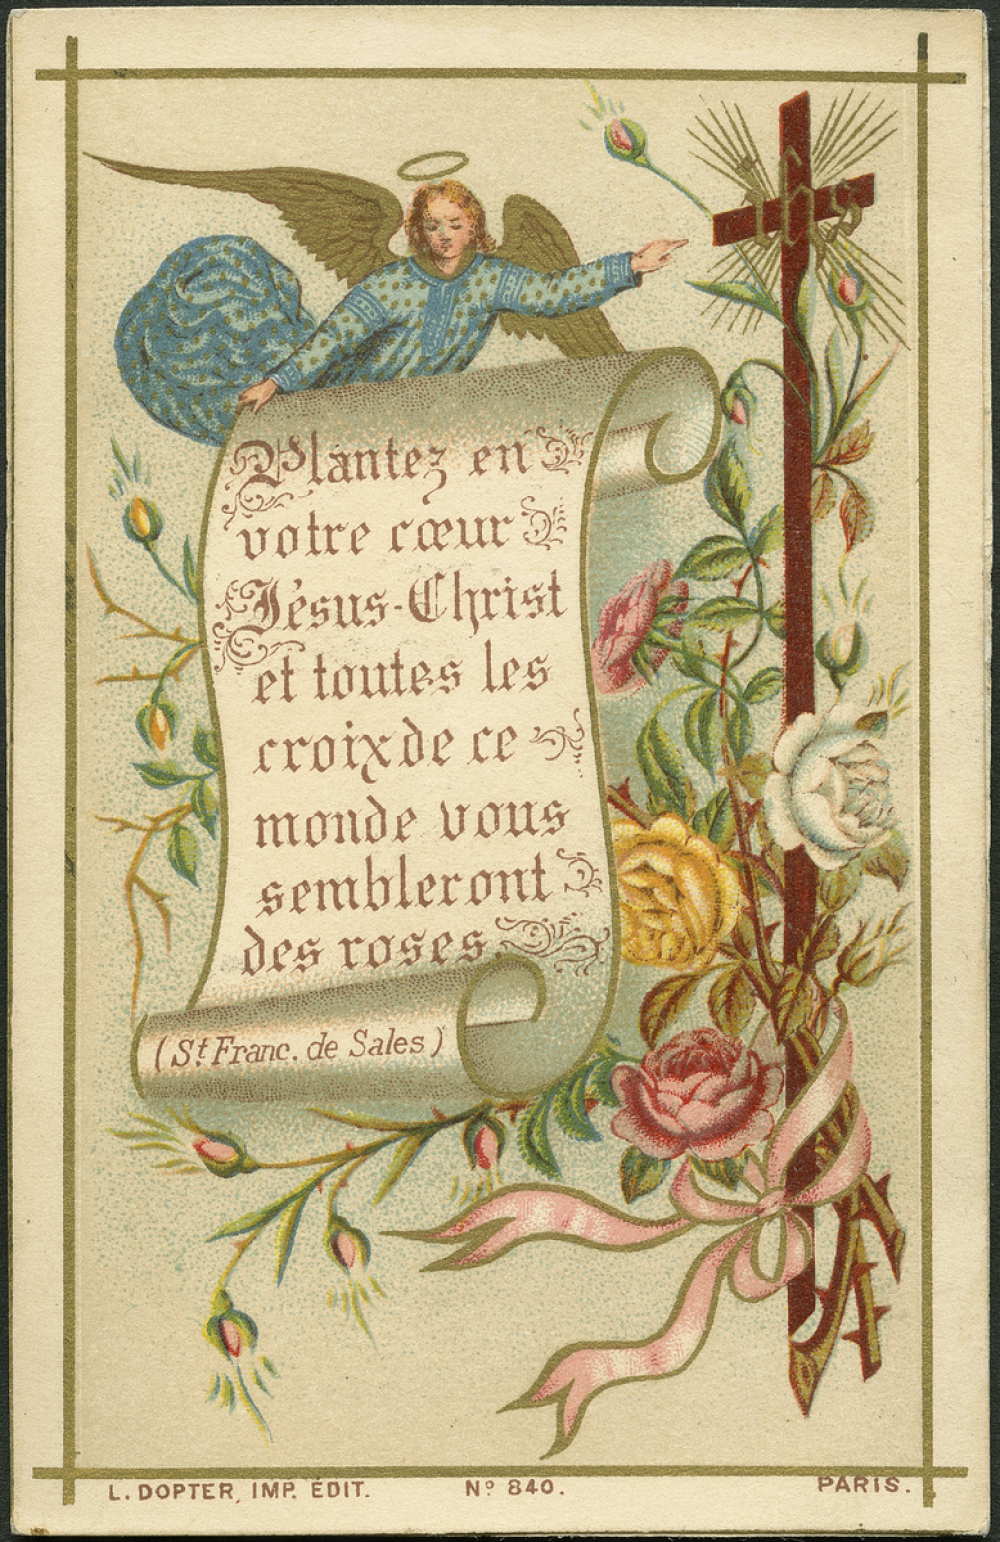 IHS
Plantez en
votre cœur
Jésus-Christ
et toutes les
croix de ce
monde vous
sembleront
des roses.
(St Franc. de Sales)
L. DOPTER, IMP. ÉDIT. Nº 840. PARIS.